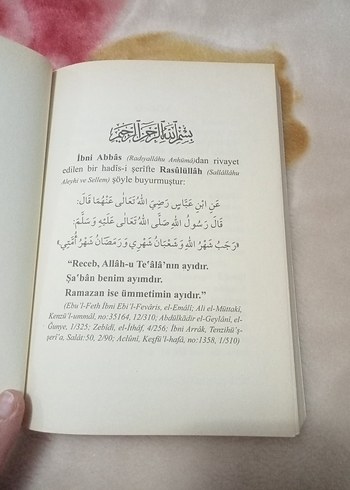 بسم الله الرحمن الرحيم
İbni Abbâs (Radıyallahu Anhümâ)dan rivayet
edilen bir hadîs-i şerifte Rasûlüllâh (Sallâllâhu
Aleyhi ve Sellem) şöyle buyurmuştur:
عَنِ ابْنِ عَبَّاسٍ رَضِيَ اللهُ تَعَالَى عَنْهُمَا قَالَ:
قَالَ رَسُولُ اللهِ صَلَّى اللهُ تَعَالَى عَلَيْهِ وَسَلَّمَ:
«رَجَبُ شَهْرُ اللهِ وَشَعْبَانُ شَهْرِي وَرَمَضَانُ شَهْرُ أُمَّتِي»
“Receb, Allâh-u Te‘âlâ’nın ayıdır.
Şa‘bân benim ayımdır.
Ramazan ise ümmetimin ayıdır.”
(Ebu’l-Feth İbni Ebi’l-Fevâris, el-Emâlî; Ali el-Müttakî,
Kenzü’l-ummâl, no:35164, 12/310; Abdülkâdir el-Geylânî, el-
Ğunye, 1/325; Zebîdî, el-İthâf, 4/256; İbni Arrâk, Tenzîhü’ş-
şerî‘a, Salât:50, 2/90; Aclûnî, Keşfü’l-hafâ, no:1358, 1/510)